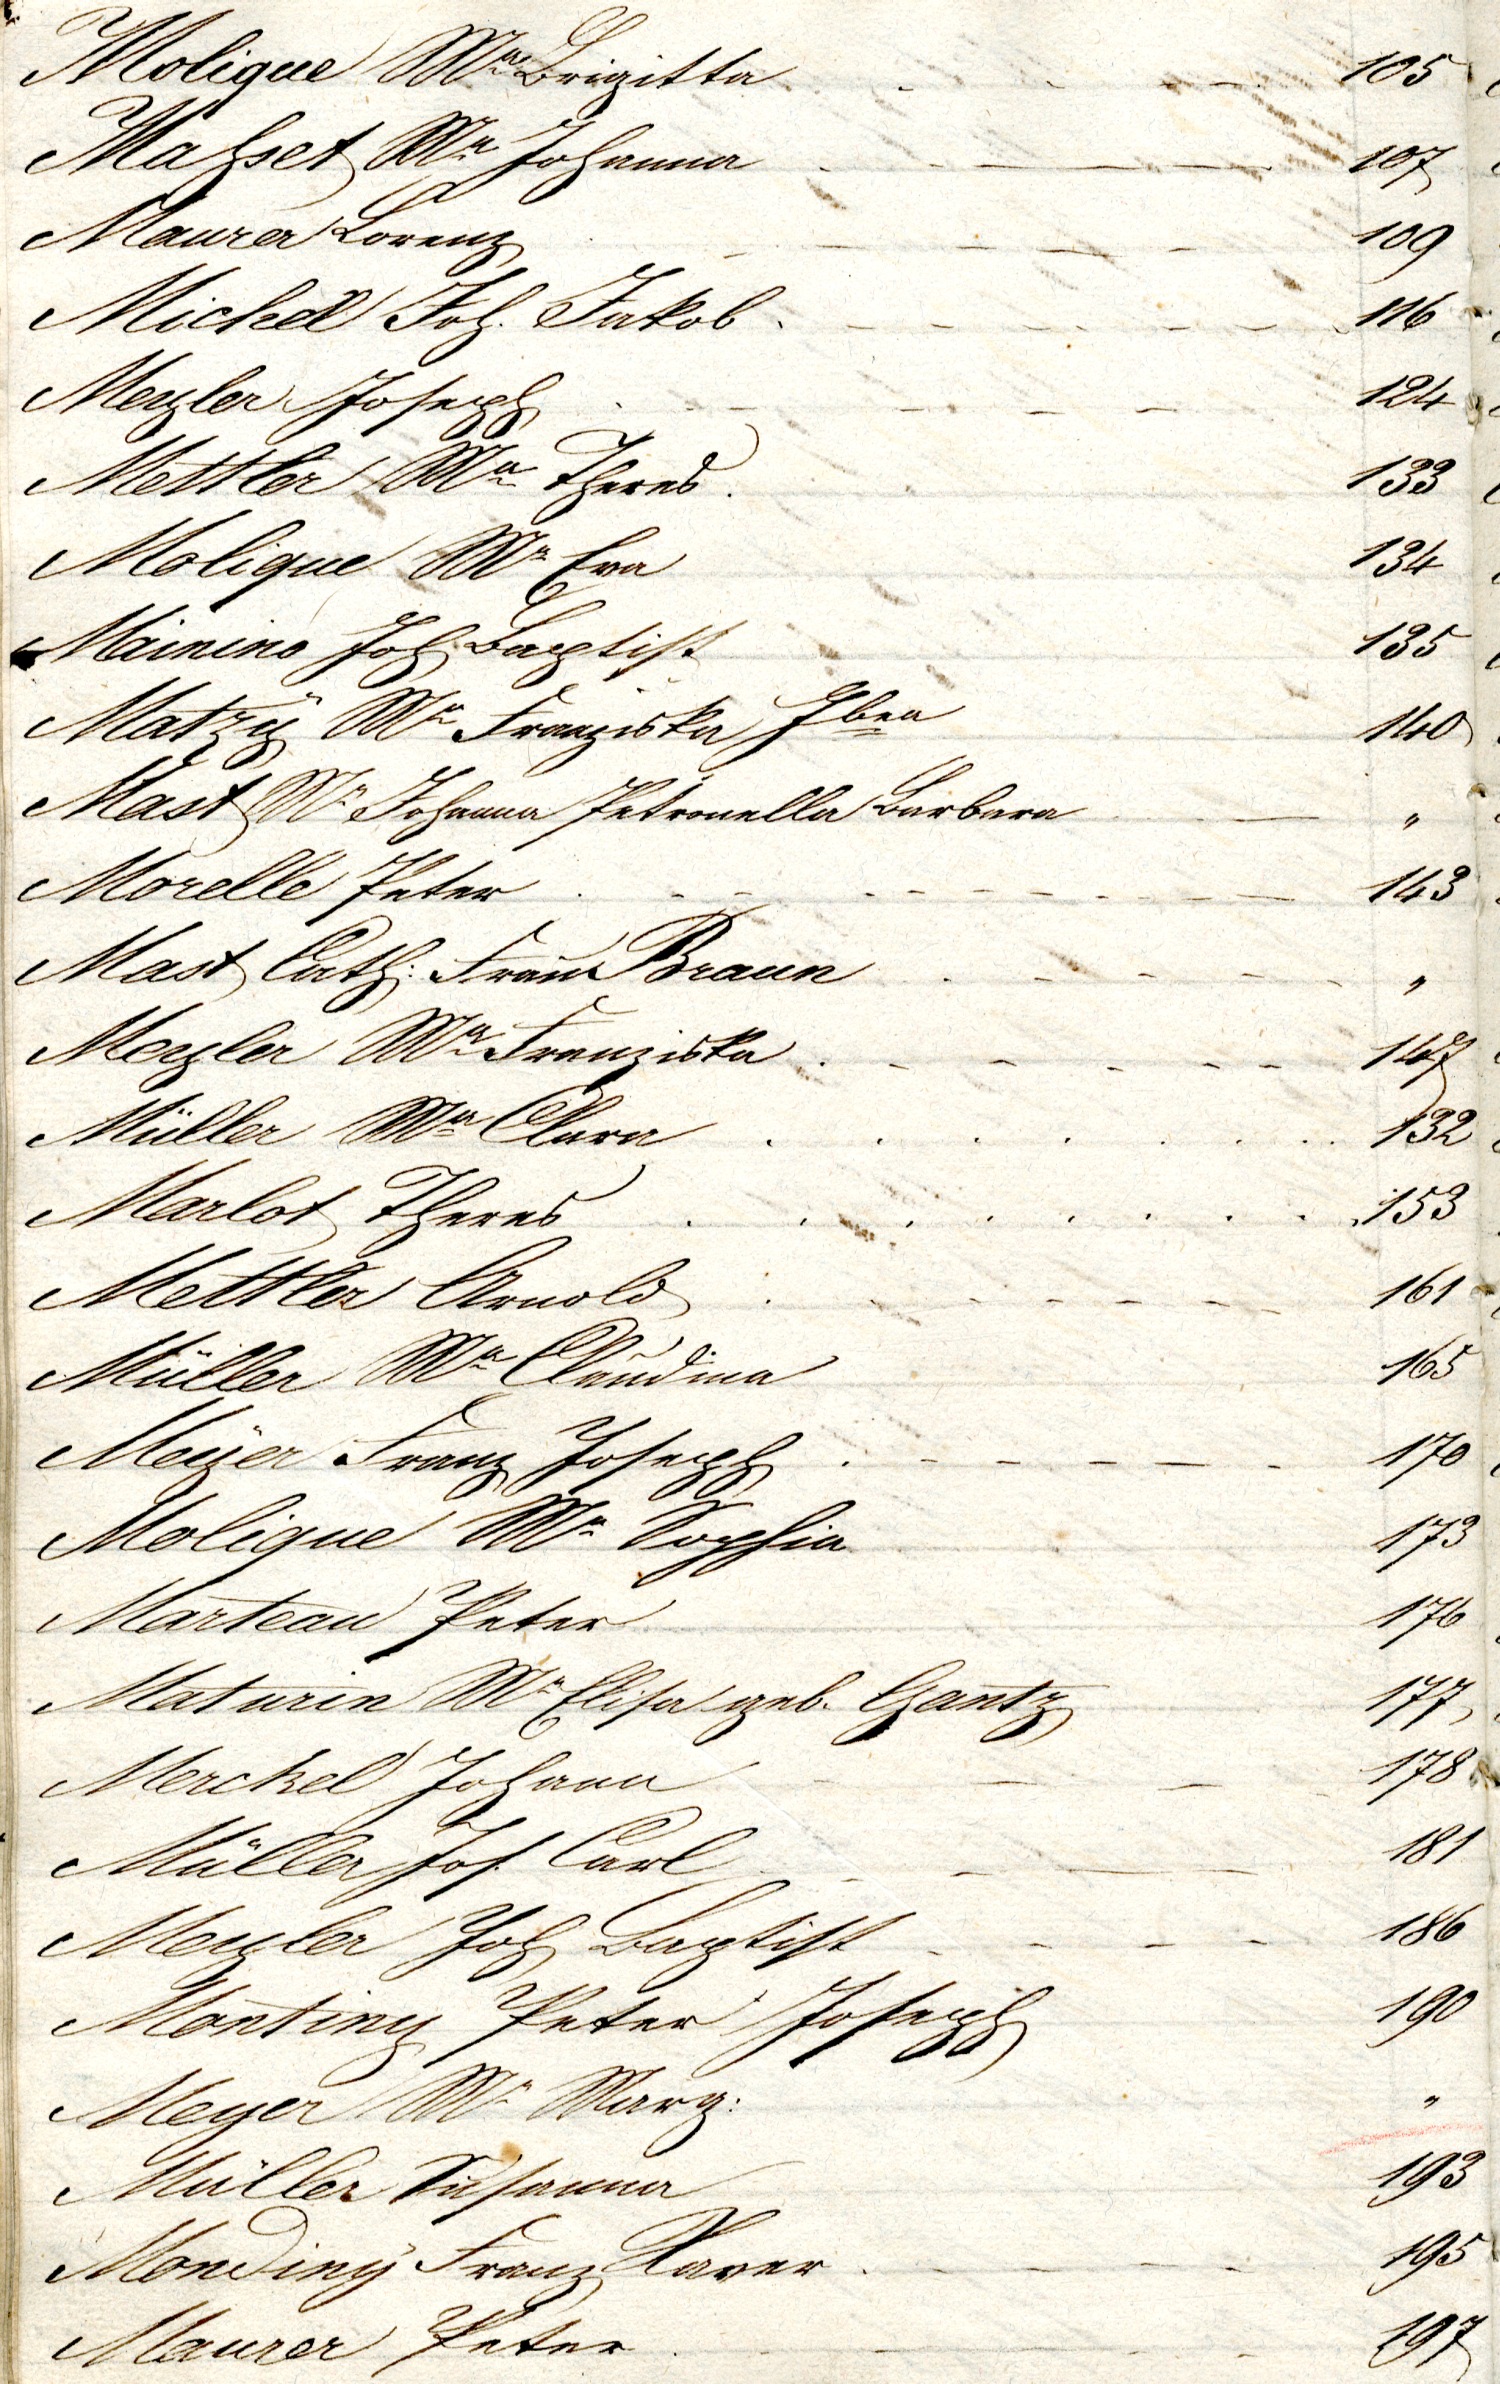 Molique Mᵃ Brigitta 105
Mahset Mᵃ Johanna 107
Maurer Lorenz 109
Michel Joh. Jakob 116
Mezler Joseph 124
Mettler Mᵃ Theres. 133
Molique Mᵃ Eva 134
Mainino Joh. Baptist 135
Matzy Mᵃ Franziska 140
Mast Mᵃ Johanna Petronella Barbara "
Morelle Peter 143
Mast Cath: Frau Braun "
Mezler Mᵃ Franziska 147
Müller Mᵃ Clara 132
Marlot Theres 153
Mettler Arnold 161
Müller Mᵃ Claudina 165
Meÿer Franz Joseph 170
Molique Mᵃ Sophia 173
Marteau Peter 176
Maturin Mᵃ Elisa geb. Gantz 177
Merckel Johann 178
Müller Jos. Carl 181
Mezler Joh Baptist 186
Montiny Peter Joseph 190
Meyer Mᵃ Marg: "
Müller Susanna 193
Mondiny Franz Xaver 195
Maurer Peter 197